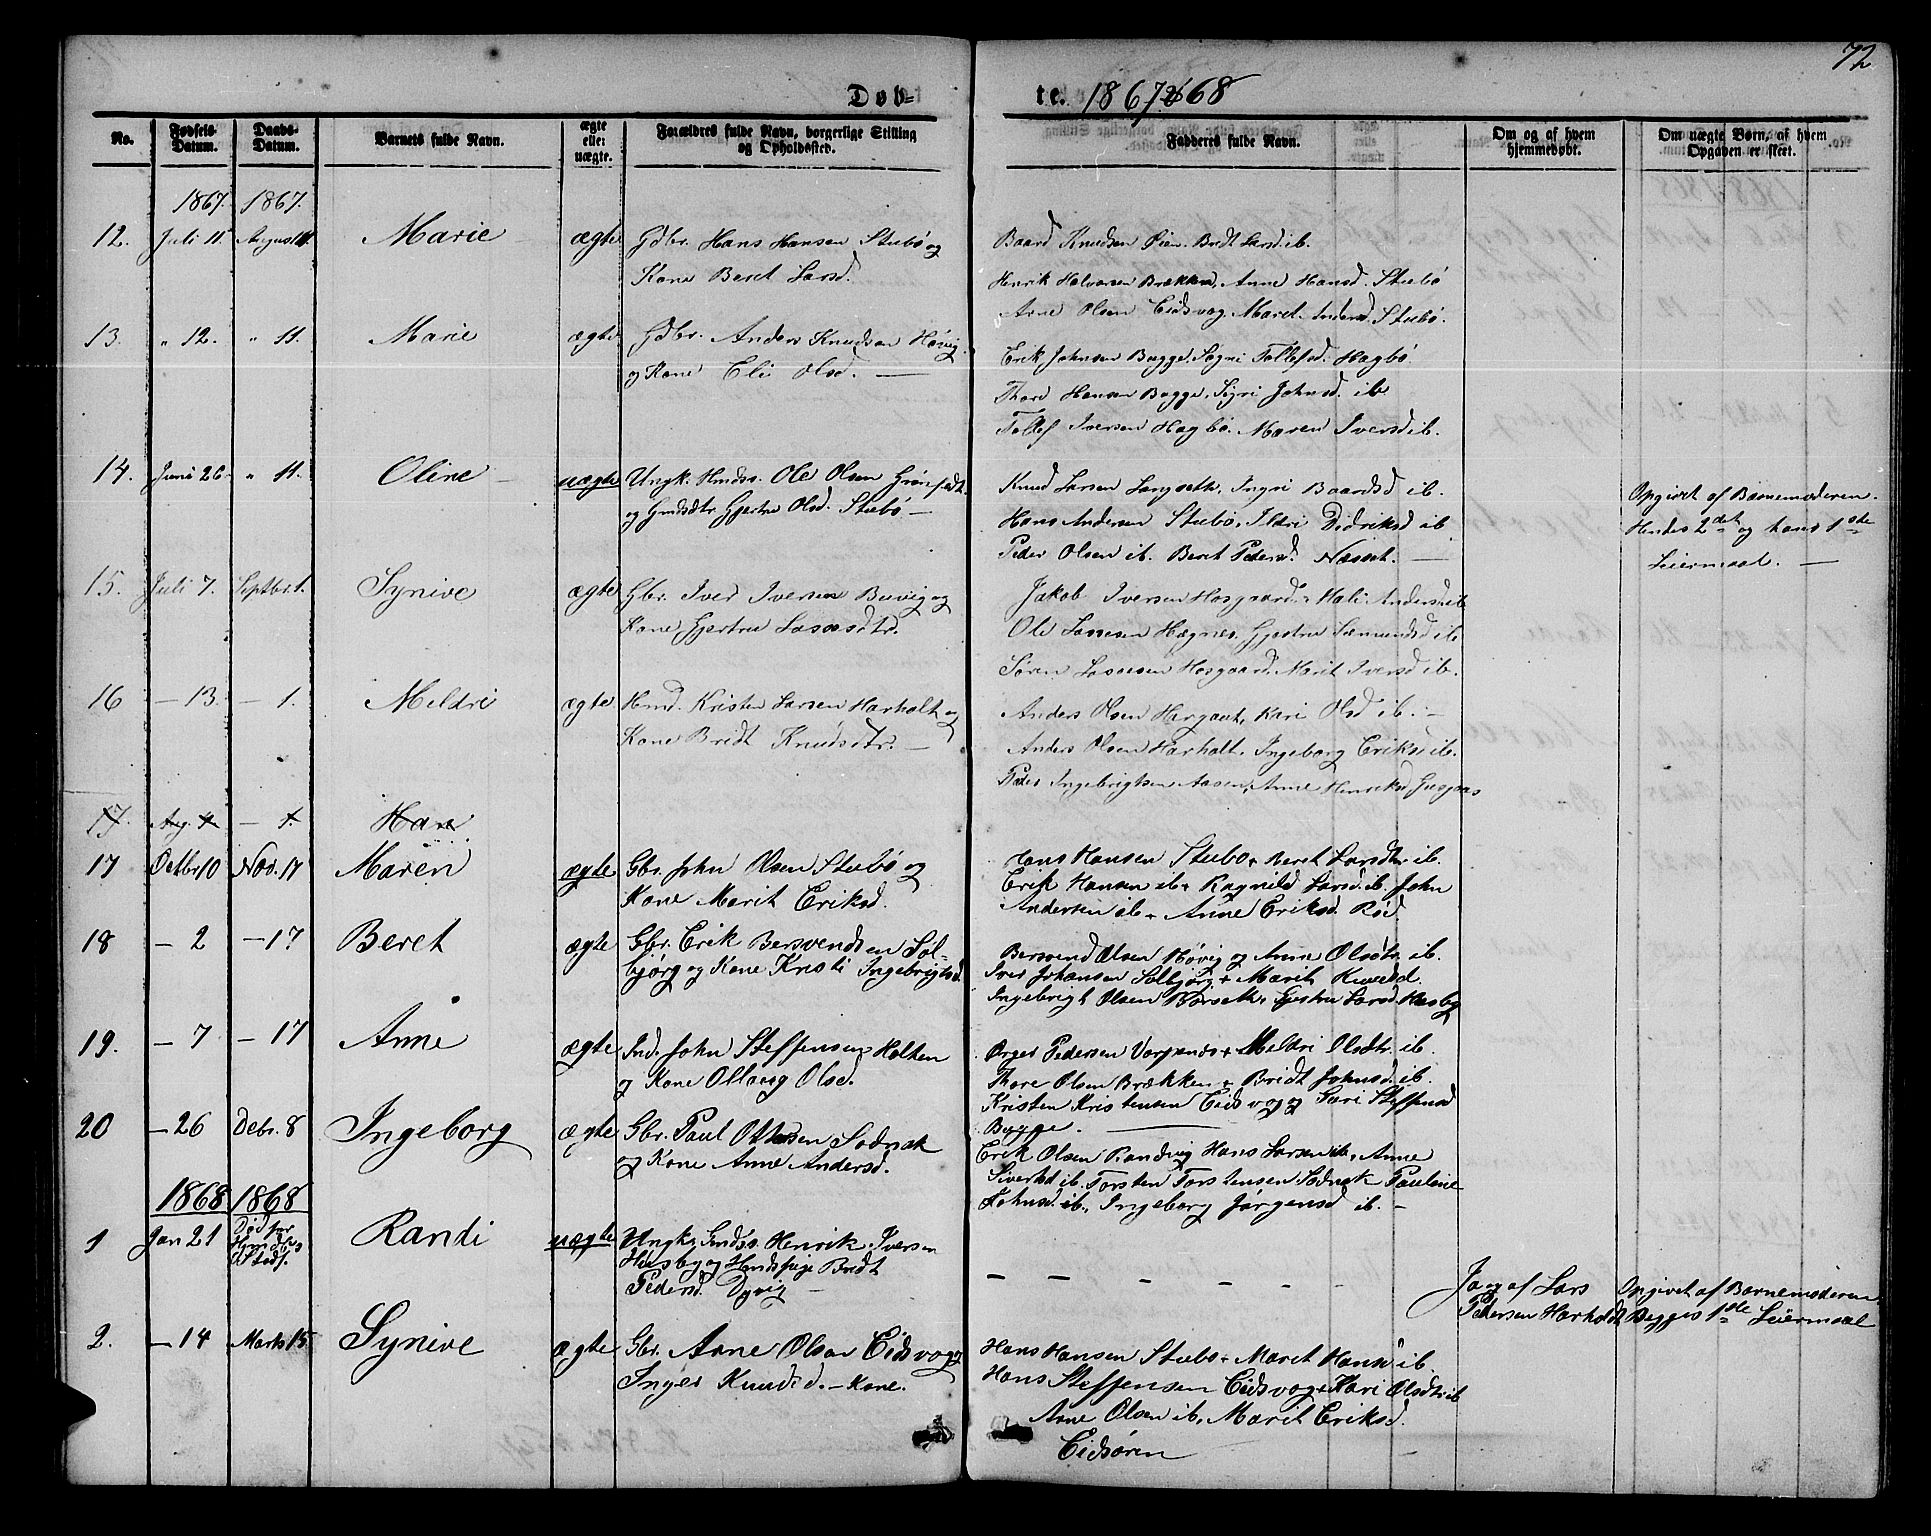 72
Døb- te. 1867 & 68
No.
Fødsels-Datum.
Daabs-Datum.
Barnets fulde Navn.
ægte eller uægte.
Forældres fulde Navn, borgerlige Stilling og Opholdssted.
Faddernes fulde Navn.
Om og af hvem hjemmedøbt.
Om uægte Børn, af hvem Opgaven er skeet.
1867. 1867.
12. Juli 11. August 11. Marie ægte Gdbr. Hans Hansen Stubø og
Kone Beret Larsd.
Baard Knudsen Øien. Bridt Larsd. ib.
Henrik Halvorsen Brækken, Anne Hansd. Stubø
Arne Olsen Eidsvog, Maret Andersd. Stubø.
13. " 12. " 11. Marie ægte Gdbr. Anders Knudsen Høvig
og Kone Eli Olsd. —
Erik Johnsen Bugge, Sigri Tollefsd. Hagbø
Thore Hansen Bugge, Sigri Johnsd. ib
Tollef Iversen Hagbø. Maren Iversd ib.
14. Juni 26. " 11. Oline uægte Ungk. Hmdss. Ole Olsen
og Gmdsdtr. Gjertru Olsd. Stubø —
Knud Larsen Langseth, Ingri Baardsd ib.
Hans Andersen Stubø, Ildri Didriksd ib
Peder Olsen ib. Beret Pedersd. Næsset. —
Opgivet af Barnemoderen.
Hendes 2det og hans 1ste
Leiermaal. —
15. Juli 7. Septbr. 1. Synive ægte Gbr. Iver Iversen Buvig og
Kone Gjertru Lassesdtr.
Jakob Iversen Hosgaard, Mali Andersd ib
Ole Lassesen Hægnes, Gjertru Sæmundsd ib.
Søren Lassesen Hosgaard, Marit Iversd ib.
16 — 13. — 1. Meldri ægte Hmd. Kristen Larsen Harholt og
Kone Bridt Knudsdtr. —
Anders Olsen Hargaut, Kari Olsd ib. —
Anders Olsen Harholt, Ingeborg Eriksd ib.
Peder Ingebrigtsen Aasen, Anne Henriksd
17. Aug. — 1. Han
17 Octbr 10 Nov. 17 Maren ægte Gbr. John Olsen Stubø og
Kone Marit Eriksd.
Hans Hansen Stubø & Beret Larsdtr. ib.
Erik Hansen ib & Ragnild Larsd. ib. John
Andersen ib & Anne Eriksd. Rød.
18 — 2 — 17 Beret ægte Gbr. Erik Bersvendsen Sol-
bjørg og Kone Kristi Ingebrigtsd.
Bersvend Olsen Høvig og Anne Olsdtr. ib.
Iver Johansen Solbjørg & Marit Knudsd.
Ingebrigt Olsen Torset & Gjertru Larsd. Husby
19. — 7 — 17 Anne ægte Ind. John Steffensen Holten
og Kone Ollaug Olsd.
Ørger Pedersen Varpenes & Meldri Olsdtr. ib.
Thore Olsen Brækken & Bridt Johnsd. ib.
Kristen Kristensen Eidsvog og Guri Steffensd
Bugge. —
20 — 26 Debr. 8 Ingeborg ægte Gbr. Paul Ottersen Sodnak
og Kone Anne Andersd.
Erik Olsen Randvig Hans Larsen ib, Anne
Sivertsd ib. Torsten Torstensen Sodnak Pauline
Johnsd. ib., Ingeborg Jørgensd ib. —
1868 1868
1 Jan 21 Død før Randi uægte Ungk. Gmdss. Henrik Iversen
Husby og Hmdspige Bridt
Pedersd. Dyvig —
— — — — —
Ja og af Lars
Pedersen Harholdt
Opgivet af Barnemoderen
Begges 1ste Leiermaal
2. — 14 Marts 15. Synive ægte Gbr. Arne Olsen Eidsvog og
Inger Knudsd. — Kone.
Hans Hansen Stubø & Maret Hansd ib.
Hans Steffensen Eidsvog & Kari Olsdtr ib
Arne Olsen ib, Marit Eriksd.
Eidsøren